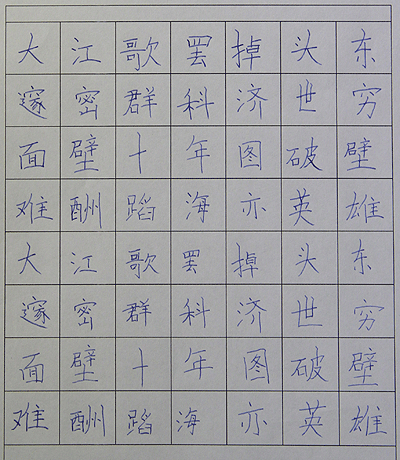 大江歌罢掉头东
邃密群科济世穷
面壁十年图破壁
难酬蹈海亦英雄
大江歌罢掉头东
邃密群科济世穷
面壁十年图破壁
难酬蹈海亦英雄